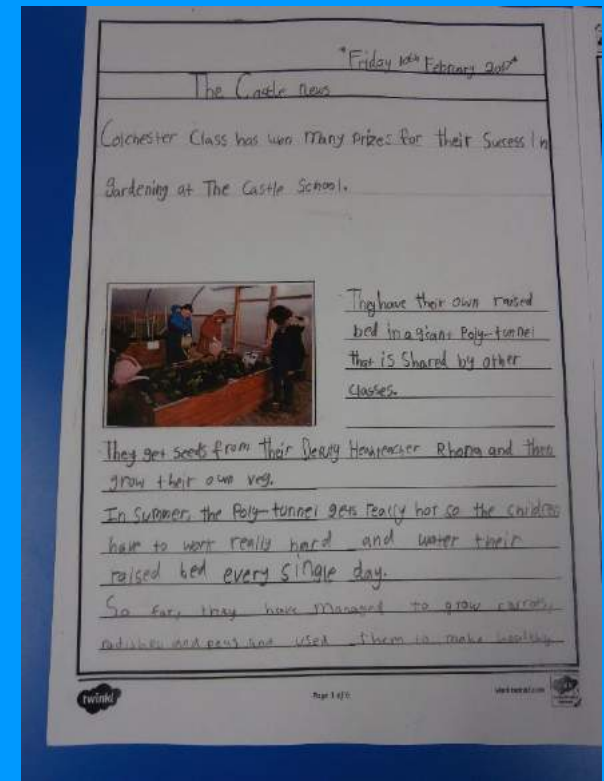 "Friday 10th February 2017"
The Castle news
Colchester Class has won many prizes for their Success In
gardening at The Castle School.
They have their own raised
bed in a giant Poly-tunnel
that is Shared by other
classes.
They get seeds from their Deputy Headteacher Rhona and then
grow their own veg.
In Summer, the Poly-tunnel gets really hot so the children
have to work really hard and water their
raised bed every single day.
So far, they have managed to grow carrots,
radishes and peas and used them to make healthy
twinkl
Page 1 of 6